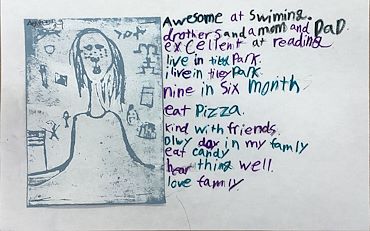 Awesome at swiming.
drothers and a mom and DaD.
excellent at reading
live in Park.
i live in Park.
nine in Six month
eat Pizza.
kind with friends.
olwy day in my famly
eat candy
hear thing well.
love family